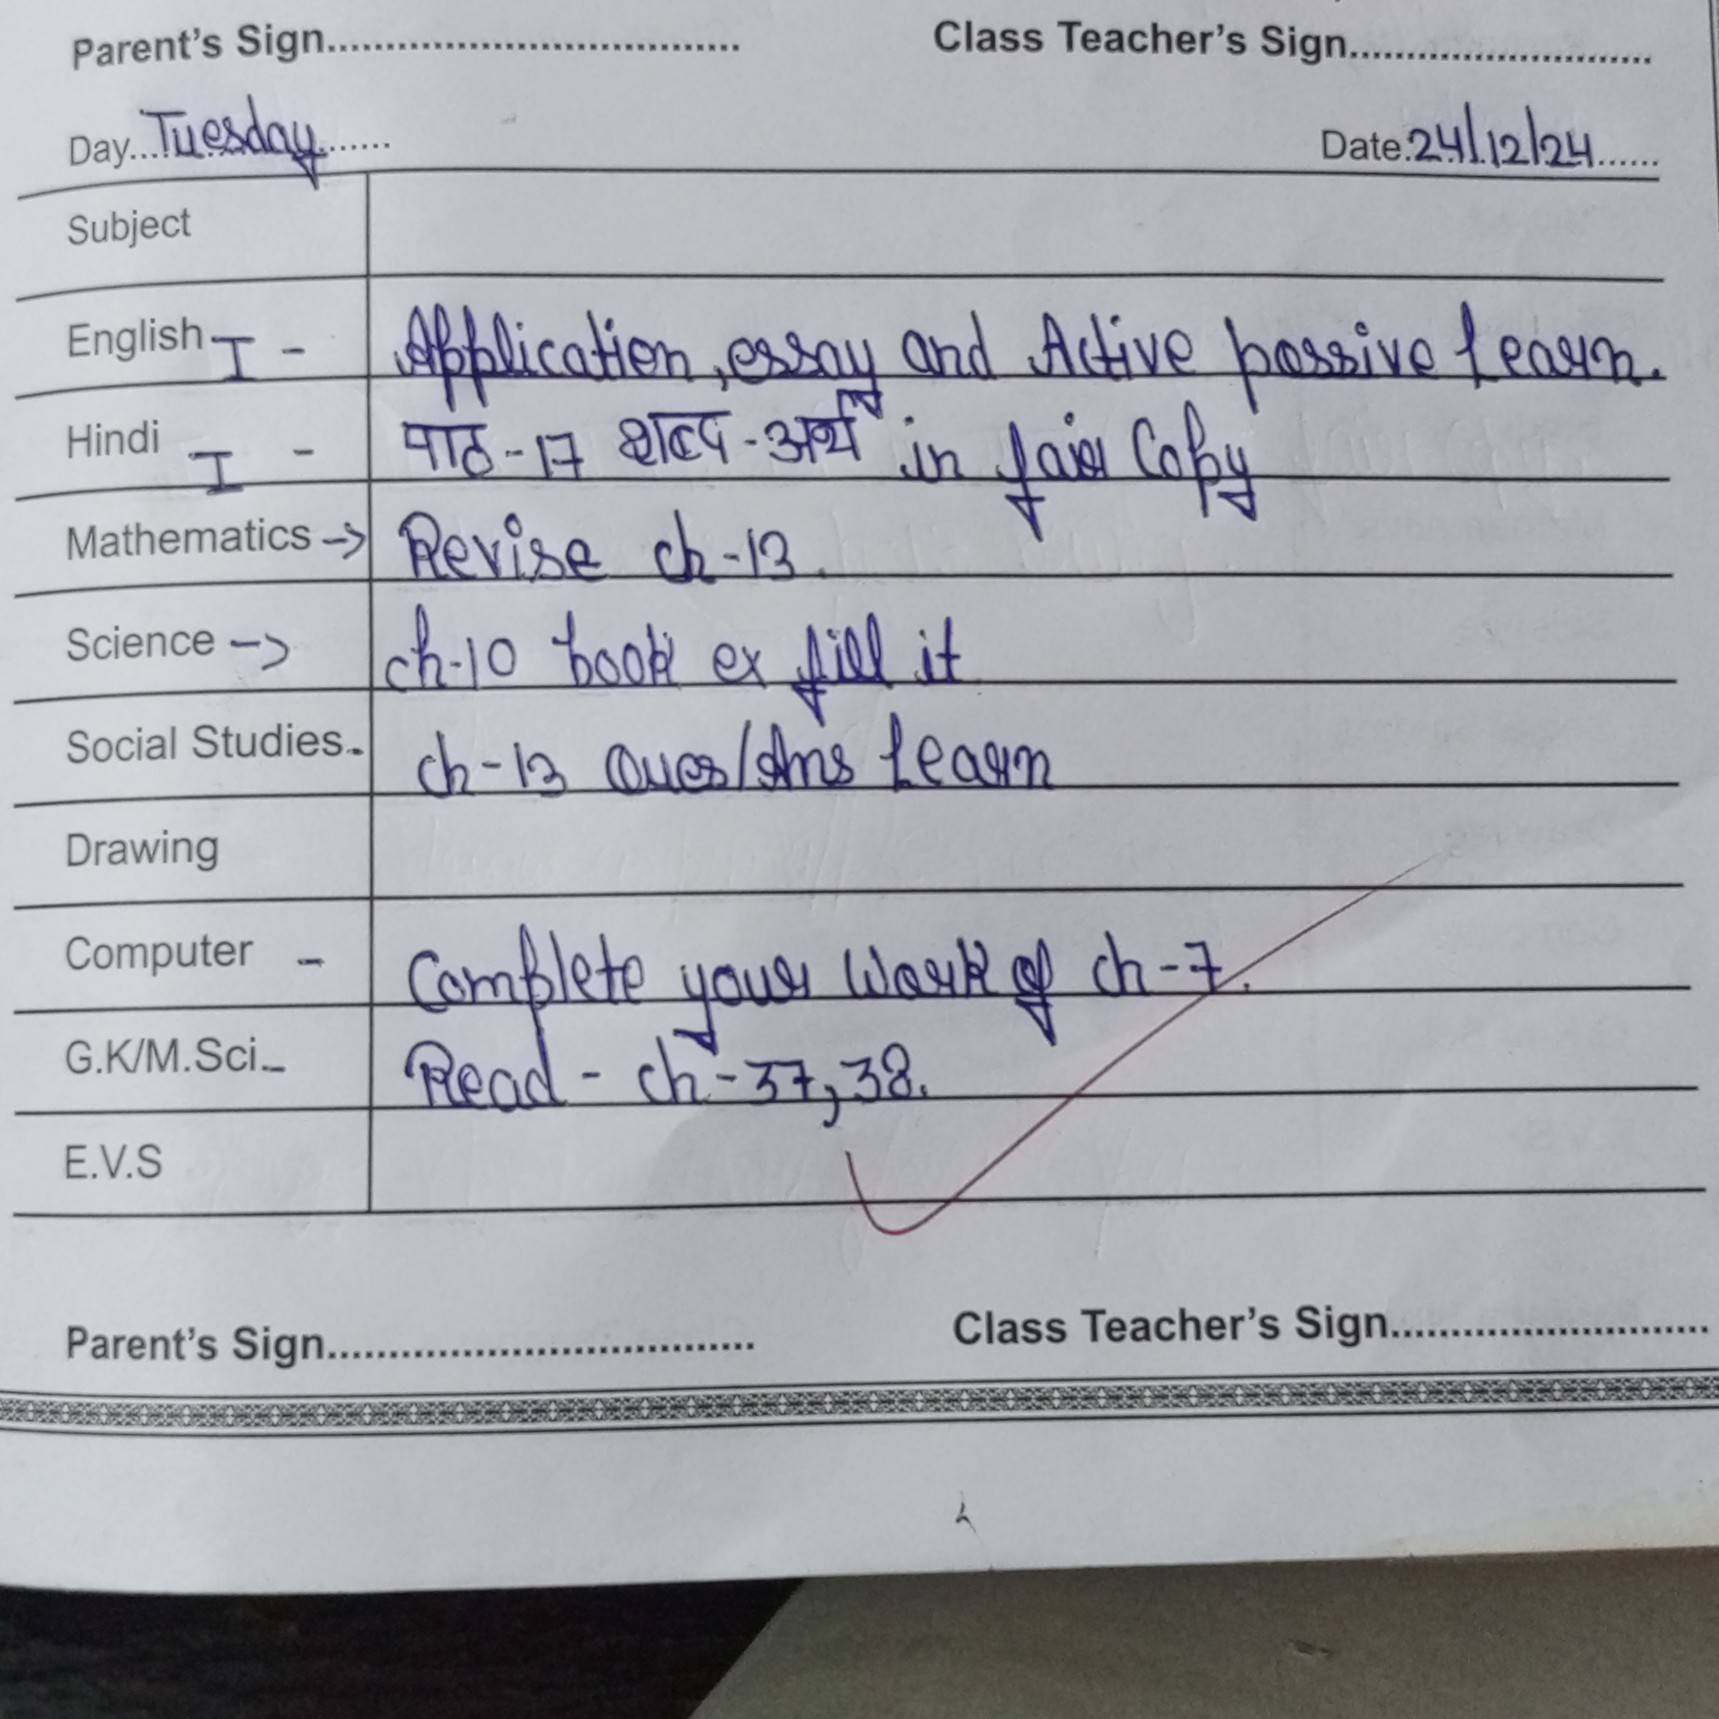 Parent's Sign.................................... Class Teacher's Sign..........................
Day...Tuesday....... Date.24/12/24......
Subject
English I - Application, essay and Active passive learn.
Hindi I - पाठ-17 शब्द-अर्थ in fair Copy
Mathematics -> Revise ch-13.
Science -> ch-10 book ex fill it
Social Studies - ch-13 Ques/Ans learn
Drawing
Computer - Complete your work of ch-7.
G.K/M.Sci. - Read - ch-37,38.
E.V.S
Parent's Sign.................................... Class Teacher's Sign...........................